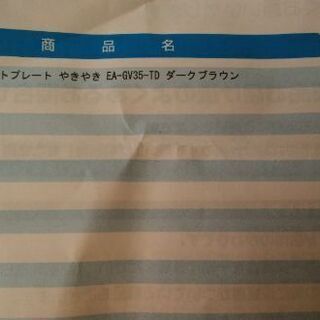 商品名
トプレート やきやき EA-GV35-TD ダークブラウン